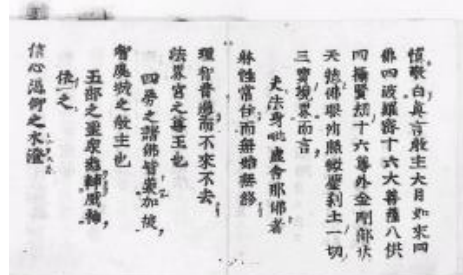 慎敬白真言敎主大日如來四
佛四波羅密十六大菩薩八供
四攝賢劫十六尊外金剛部伏
天惣佛眼所照微塵刹土一切
三寳境界而言
夫法身毗盧舍那佛者
躰性常住而無始無終
理智普遍而不來不去
法界宮之尊王也
四方之諸佛皆蒙加被
密嚴城之敎主也
五部之聖衆
依之
信心渇仰之水澄